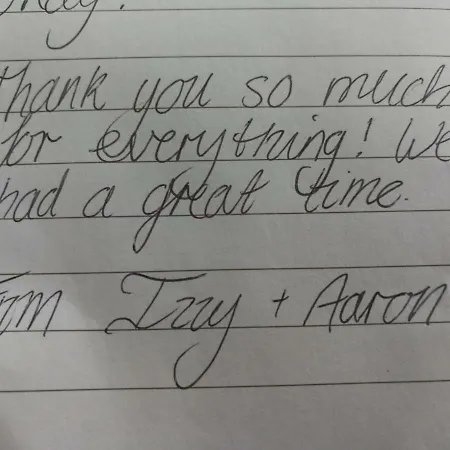 thank you so much
for everything! We
had a great time.
From Izzy + Aaron